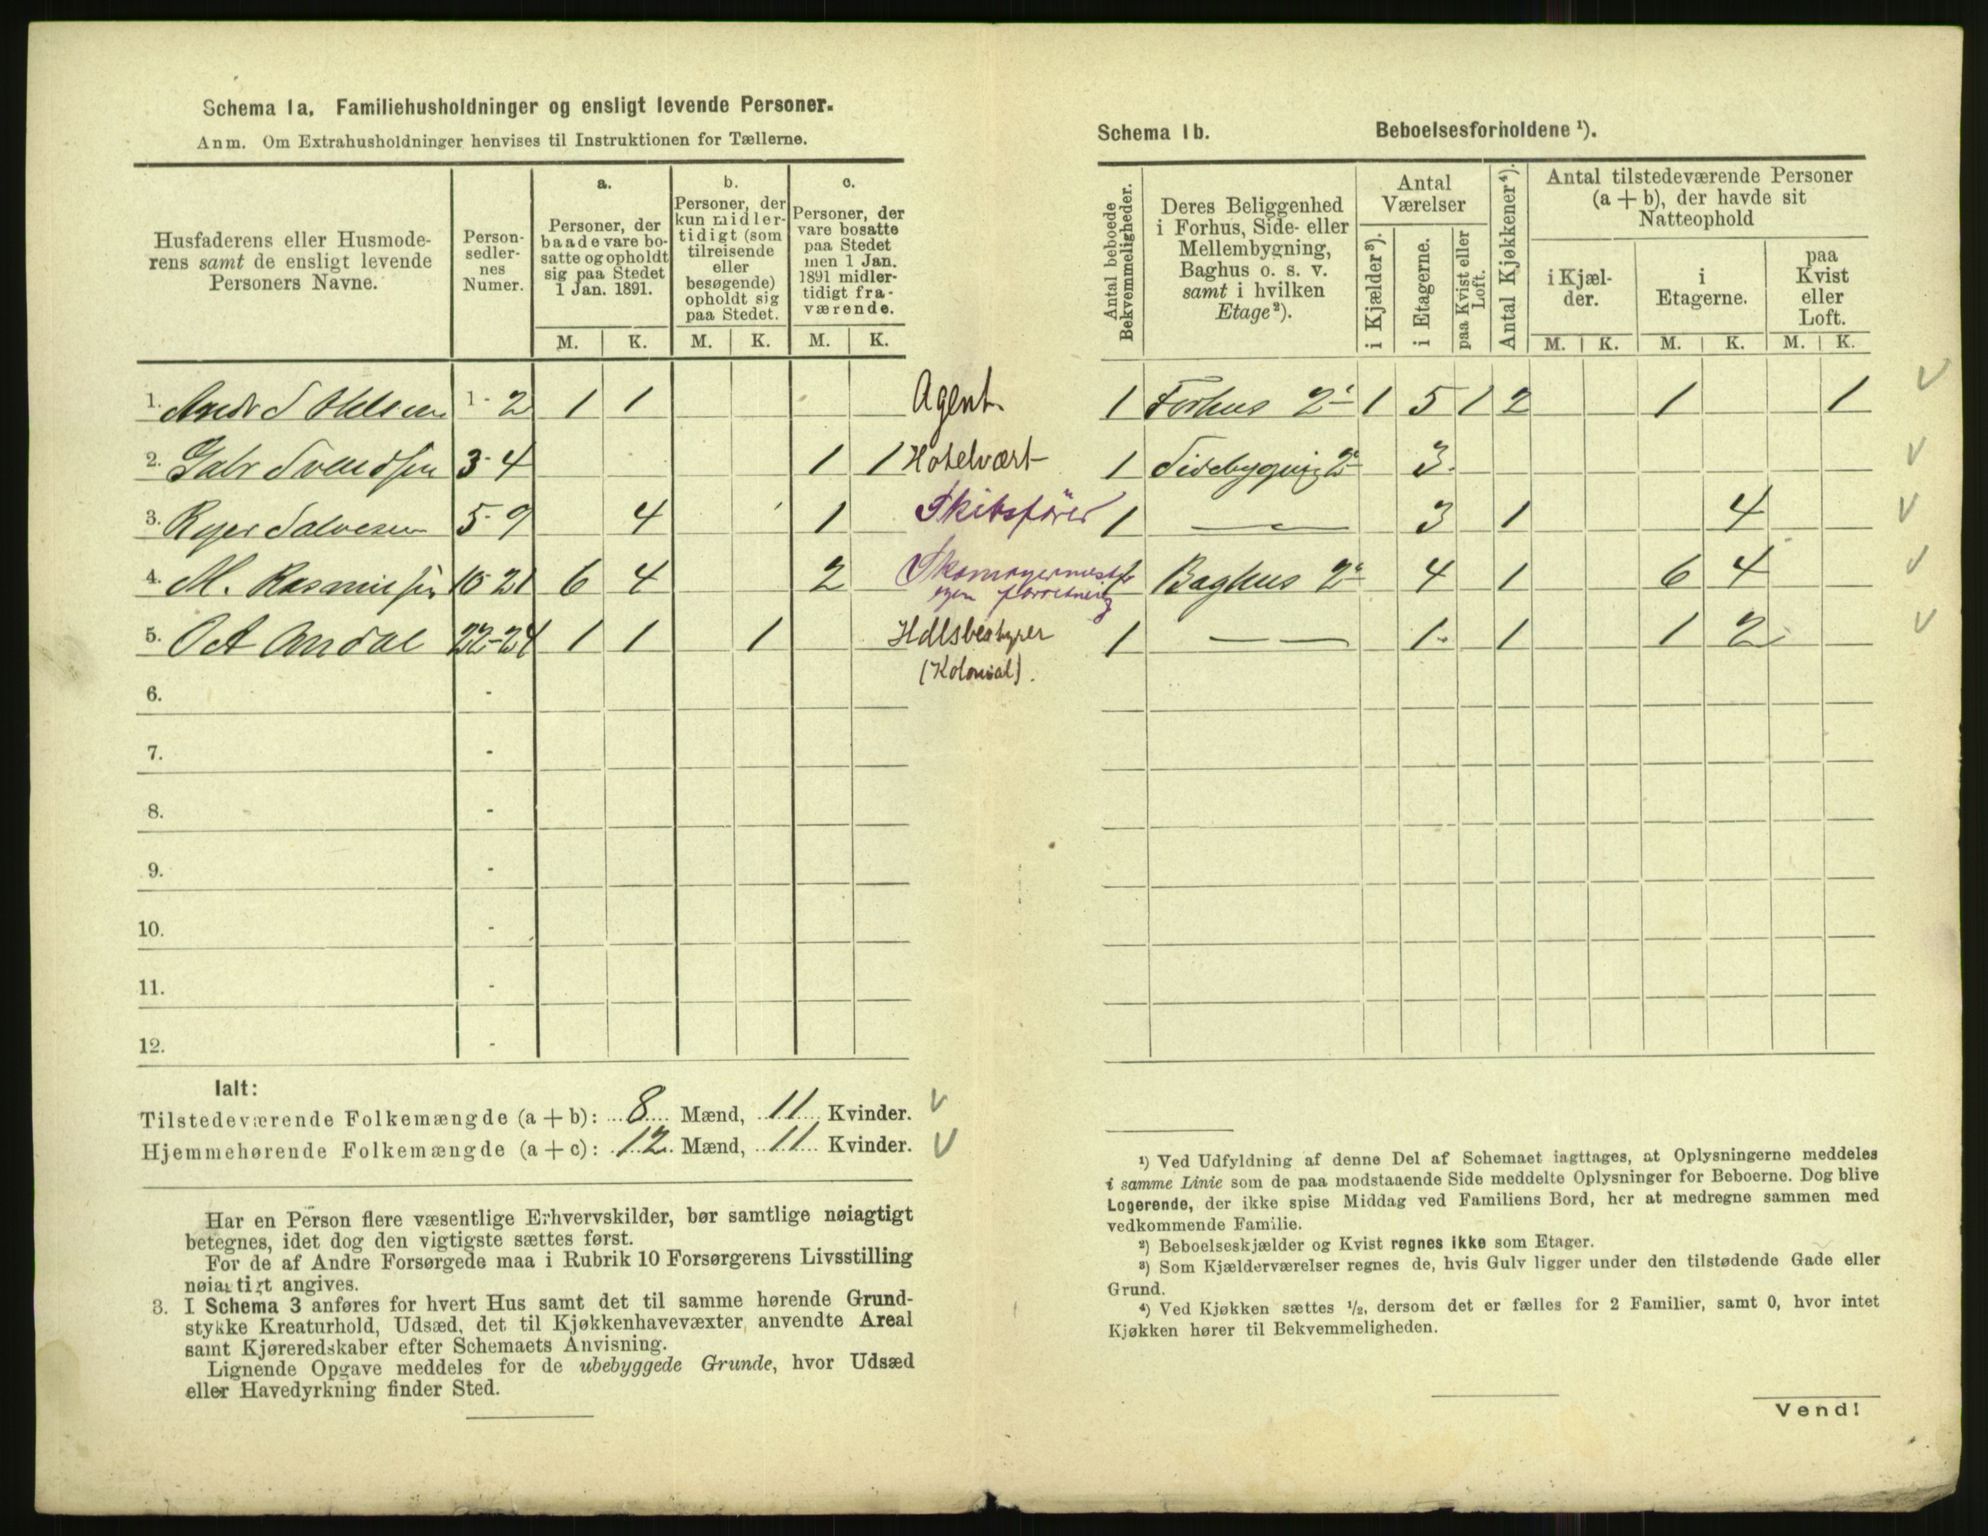 Schema 1a. Familiehusholdninger og ensligt levende Personer.
Anm. Om Extrahusholdninger henvises til Instruktionen for Tællerne.
Husfaderens eller Husmode-
rens samt de ensligt levende
Personers Navne.
Person-
sedler-
nes
Numer.
a.
Personer, der
baade vare bo-
satte og opholdt
sig paa Stedet
1 Jan. 1891.
b.
Personer, der
kun midler-
tidigt (som
tilreisende
eller
besøgende)
opholdt sig
paa Stedet.
c.
Personer, der
vare bosatte
paa Stedet
men 1 Jan.
1891 midler-
tidigt fra-
værende.
M. K. M. K. M. K.
1. Andr S 1-2 1 1 Agent
2. Gabr Svendsen 3-4 1 1 Hotelvært
3. Ryer Salvesen 5-9 4 1 Skibsfører
4. M. Rasmussen 10-21 6 4 2 Skomagermester
egen forretning
5. O A Omdal 22-24 1 1 1 Hdlsbestyrer
(Kolonial).
6. -
7. -
8. -
9. -
10. -
11. -
12. -
Ialt:
Tilstedeværende Folkemængde (a + b): 8 Mænd, 11 Kvinder.
Hjemmehørende Folkemængde (a + c): 12 Mænd, 11 Kvinder.
Har en Person flere væsentlige Erhvervskilder, bør samtlige nøiagtigt
betegnes, idet dog den vigtigste sættes først.
For de af Andre Forsørgede maa i Rubrik 10 Forsørgerens Livsstilling
nøiagtigt angives.
3. I Schema 3 anføres for hvert Hus samt det til samme hørende Grund-
stykke Kreaturhold, Udsæd, det til Kjøkkenhavevæxter anvendte Areal
samt Kjøreredskaber efter Schemaets Anvisning.
Lignende Opgave meddeles for de ubebyggede Grunde, hvor Udsæd
eller Havedyrkning finder Sted.
Schema 1b. Beboelsesforholdene ¹).
Antal beboede
Bekvemmeligheder.
Deres Beliggenhed
i Forhus, Side- eller
Mellembygning,
Baghus o. s. v.
samt i hvilken
Etage²).
Antal
Værelser
i Kjælder³).
i Etagerne.
paa Kvist eller
Loft.
Antal Kjøkkener⁴).
Antal tilstedeværende Personer
(a + b), der havde sit
Natteophold
i Kjæl-
der.
i
Etagerne.
paa
Kvist
eller
Loft.
M. K. M. K. M. K.
1 Forhus 2' 1 5 1 2 1 1
1 Sidebygning 2' 3
1 — " — 3 1 4
1 Baghus 2' 4 1 6 4
1 — — 1 1 1 2
¹) Ved Udfyldning af denne Del af Schemaet iagttages, at Oplysningerne meddeles
i samme Linie som de paa modstaaende Side meddelte Oplysninger for Beboerne. Dog blive
Logerende, der ikke spise Middag ved Familiens Bord, her at medregne sammen med
vedkommende Familie.
²) Beboelseskjælder og Kvist regnes ikke som Etager.
³) Som Kjælderværelser regnes de, hvis Gulv ligger under den tilstødende Gade eller
Grund.
⁴) Ved Kjøkken sættes ½, dersom det er fælles for 2 Familier, samt 0, hvor intet
Kjøkken hører til Bekvemmeligheden.
Vend!